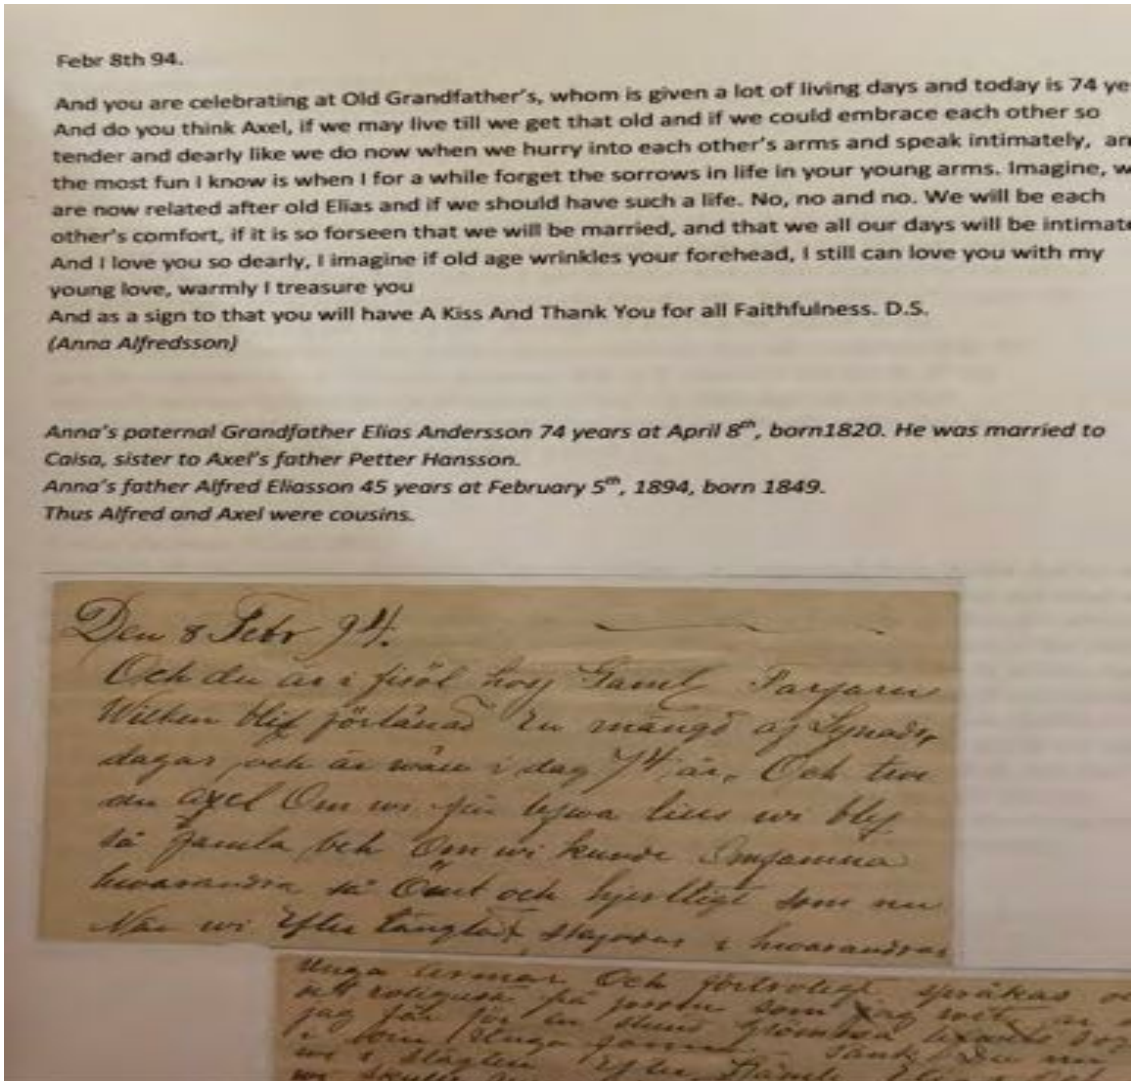 Febr 8th 94.
And you are celebrating at Old Grandfather's, whom is given a lot of living days and today is 74 ye
And do you think Axel, if we may live till we get that old and if we could embrace each other so
tender and dearly like we do now when we hurry into each other's arms and speak intimately, an
the most fun I know is when I for a while forget the sorrows in life in your young arms. Imagine, w
are now related after old Elias and if we should have such a life. No, no and no. We will be each
other's comfort, if it is so forseen that we will be married, and that we all our days will be intimate
And I love you so dearly, I imagine if old age wrinkles your forehead, I still can love you with my
young love, warmly I treasure you
And as a sign to that you will have A Kiss And Thank You for all Faithfulness. D.S.
(Anna Alfredsson)
Anna's paternal Grandfather Elias Andersson 74 years at April 8th, born1820. He was married to
Caisa, sister to Axel's father Petter Hansson.
Anna's father Alfred Eliasson 45 years at February 5th, 1894, born 1849.
Thus Alfred and Axel were cousins.
Den 8 Febr 94.
Och du är i hos Gaml Farfars
Wilken blif förlänad En mängd af
dagar och är i dag 74 år. Och
du Axel Om wi får wi blif
så gamla och Om wi kunde Omfamna
hwarandra så Ömt och hjertligt som nu
När wi Efter i hwarandras
Unga armar Och förtroligt språkas
som jag wet
jag får för en stund glömma
i Unga
wi Efter